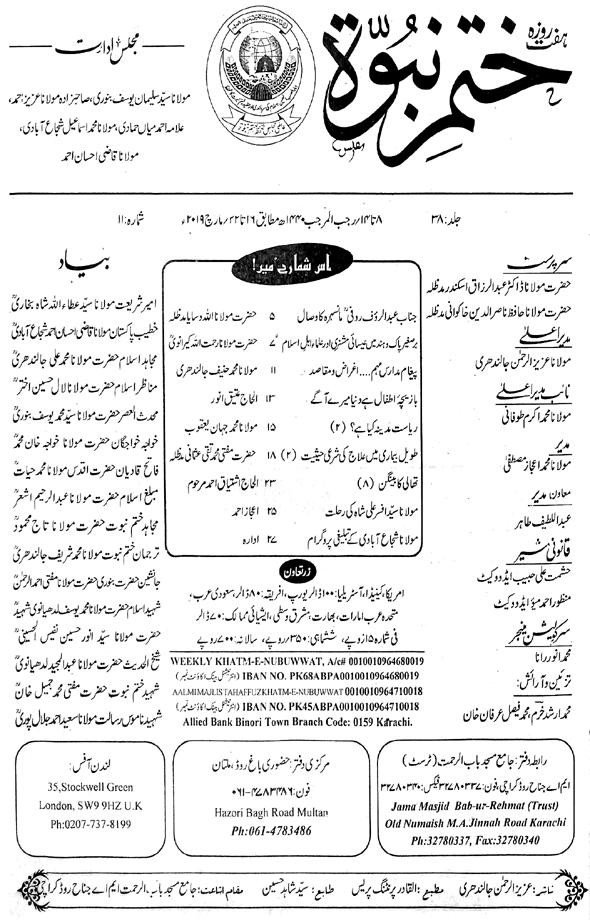 ہفت روزہ
ختم نبوۃ
مجلس
مجلس ادارت
مولانا سید سلیمان یوسف بنوری، صاحبزادہ مولانا عزیز احمد،
علامہ احمد میاں حمادی، مولانا محمد اسماعیل شجاع آبادی،
مولانا قاضی احسان احمد
جلد: ۳۸
۸ تا ۱۴/ رجب المرجب ۱۴۴۰ھ مطابق ۱۶ تا ۲۲/ مارچ ۲۰۱۹ء
شمارہ: ۱۱
سرپرست
حضرت مولانا ڈاکٹر عبدالرزاق اسکندر مدظلہ
حضرت مولانا حافظ ناصر الدین خاکوانی مدظلہ
مدیر اعلیٰ
مولانا عزیز الرحمٰن جالندھری
نائب مدیر اعلیٰ
مولانا محمد اکرم طوفانی
مدیر
مولانا محمد اعجاز مصطفیٰ
معاون مدیر
عبداللطیف طاہر
قانونی مشیر
حشمت علی حبیب ایڈووکیٹ
منظور احمد میؤ ایڈووکیٹ
سرکولیشن منیجر
محمد انور رانا
تزئین و آرائش:
محمد ارشد خرم، محمد فیصل عرفان خان
اس شمارے میں!
جناب عبدالرؤف روفیؒ مانسہرہ کا وصال ۵ حضرت مولانا اللہ وسایا مدظلہ
برصغیر پاک و ہند میں عیسائی مشنری اور علماء اہل اسلام ۷ حضرت مولانا رحمت اللہ کیرانویؒ
پیغام مدارس مہم.... اغراض و مقاصد ۱۱ مولانا محمد حنیف جالندھری
بازیچۂ اطفال ہے دنیا میرے آگے ۱۳ الحاج عتیق انور
ریاست مدینہ کیا ہے؟ (۲) ۱۵ مولانا محمد جہان یعقوب
طویل بیماری میں علاج کی شرعی حیثیت (۲) ۱۸ حضرت مفتی محمد تقی عثمانی مدظلہ
تھالی کا بینگن (۸) ۲۳ الحاج اشتیاق احمد مرحوم
مولانا سید انظر علی شاہ کی رحلت ۲۵ اعجاز احمد
مولانا شجاع آبادی کے تبلیغی پروگرام ۲۷ ادارہ
زرتعاون
امریکا، کینیڈا، آسٹریلیا: ۱۰۰ ڈالر یورپ، افریقہ: ۸۰ ڈالر، سعودی عرب،
متحدہ عرب امارات، بھارت، مشرق وسطیٰ، ایشیائی ممالک: ۷۰ ڈالر
فی شمارہ ۱۵ روپے، ششماہی: ۳۵۰ روپے، سالانہ: ۷۰۰ روپے
WEEKLY KHATM-E-NUBUWWAT, A/c# 0010010964680019
IBAN NO. PK68ABPA0010010964680019 (انٹرنیشنل بینک اکاؤنٹ نمبر)
AALMI MAJLIS TAHAFFUZ KHATM-E-NUBUWWAT 0010010964710018
IBAN NO. PK45ABPA0010010964710018 (انٹرنیشنل بینک اکاؤنٹ نمبر)
Allied Bank Binori Town Branch Code: 0159 Karachi.
بیاد
امیر شریعت مولانا سید عطاء اللہ شاہ بخاریؒ
خطیب پاکستان مولانا قاضی احسان احمد شجاع آبادیؒ
مجاہد اسلام حضرت مولانا محمد علی جالندھریؒ
مناظر اسلام حضرت مولانا لال حسین اخترؒ
محدث العصر حضرت مولانا سید محمد یوسف بنوریؒ
خواجہ خواجگان حضرت مولانا خواجہ خان محمدؒ
فاتح قادیان حضرت اقدس مولانا محمد حیاتؒ
مبلغ اسلام حضرت مولانا عبدالرحیم اشعرؒ
مجاہد ختم نبوت حضرت مولانا تاج محمودؒ
ترجمان ختم نبوت مولانا محمد شریف جالندھریؒ
جانشین حضرت بنوری حضرت مولانا مفتی احمد الرحمٰنؒ
شہید اسلام حضرت مولانا محمد یوسف لدھیانوی شہیدؒ
حضرت مولانا سید انور حسین نفیس الحسینیؒ
شیخ الحدیث حضرت مولانا عبدالمجید لدھیانویؒ
شہید ختم نبوت حضرت مفتی محمد جمیل خانؒ
شہید ناموس رسالت مولانا سعید احمد جلال پوریؒ
رابطہ دفتر: جامع مسجد باب الرحمت (ٹرسٹ)
ایم اے جناح روڈ کراچی، فون: ۳۲۷۸۰۳۳۷ فیکس: ۳۲۷۸۰۳۴۰
Jama Masjid Bab-ur-Rehmat (Trust)
Old Numaish M.A.Jinnah Road Karachi
Ph:32780337, Fax:32780340
مرکزی دفتر: حضوری باغ روڈ، ملتان
فون: ۰۶۱-۴۷۸۳۴۸۶
Hazori Bagh Road Multan
Ph:061-4783486
لندن آفس:
35,Stockwell Green
London, SW9 9HZ U.K
Ph:0207-737-8199
ناشر: عزیز الرحمٰن جالندھری مطبع: القادر پرنٹنگ پریس طابع: سید شاہد حسین مقام اشاعت: جامع مسجد باب الرحمت ایم اے جناح روڈ کراچی